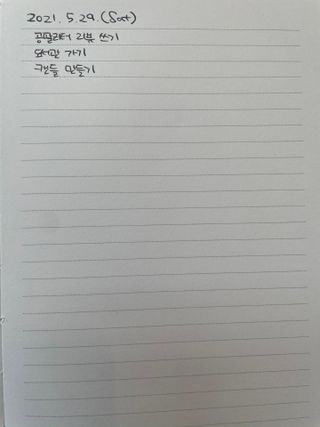 2021. 5. 29. (Sat)
공필러터 리뷰 쓰기
도서관 가기
캔들 만들기